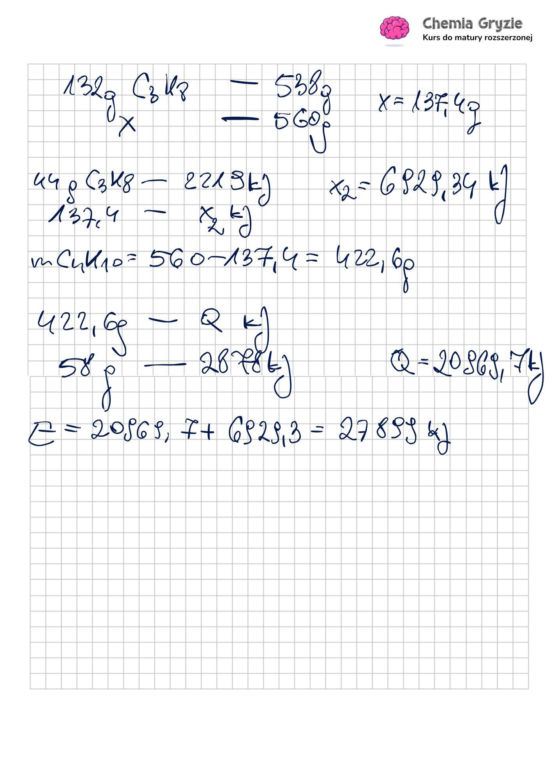 Chemia Gryzie
Kurs do matury rozszerzonej
132g C3H8 — 538g
x — 560g
x = 137,4g
44g C3H8 — 2219kJ
137,4 — x2 kJ
x2 = 6929,34 kJ
mC4H10 = 560-137,4 = 422,6g
422,6g — Q kJ
58g — 2878kJ
Q = 20969,7kJ
E = 20969,7 + 6929,3 = 27899 kJ